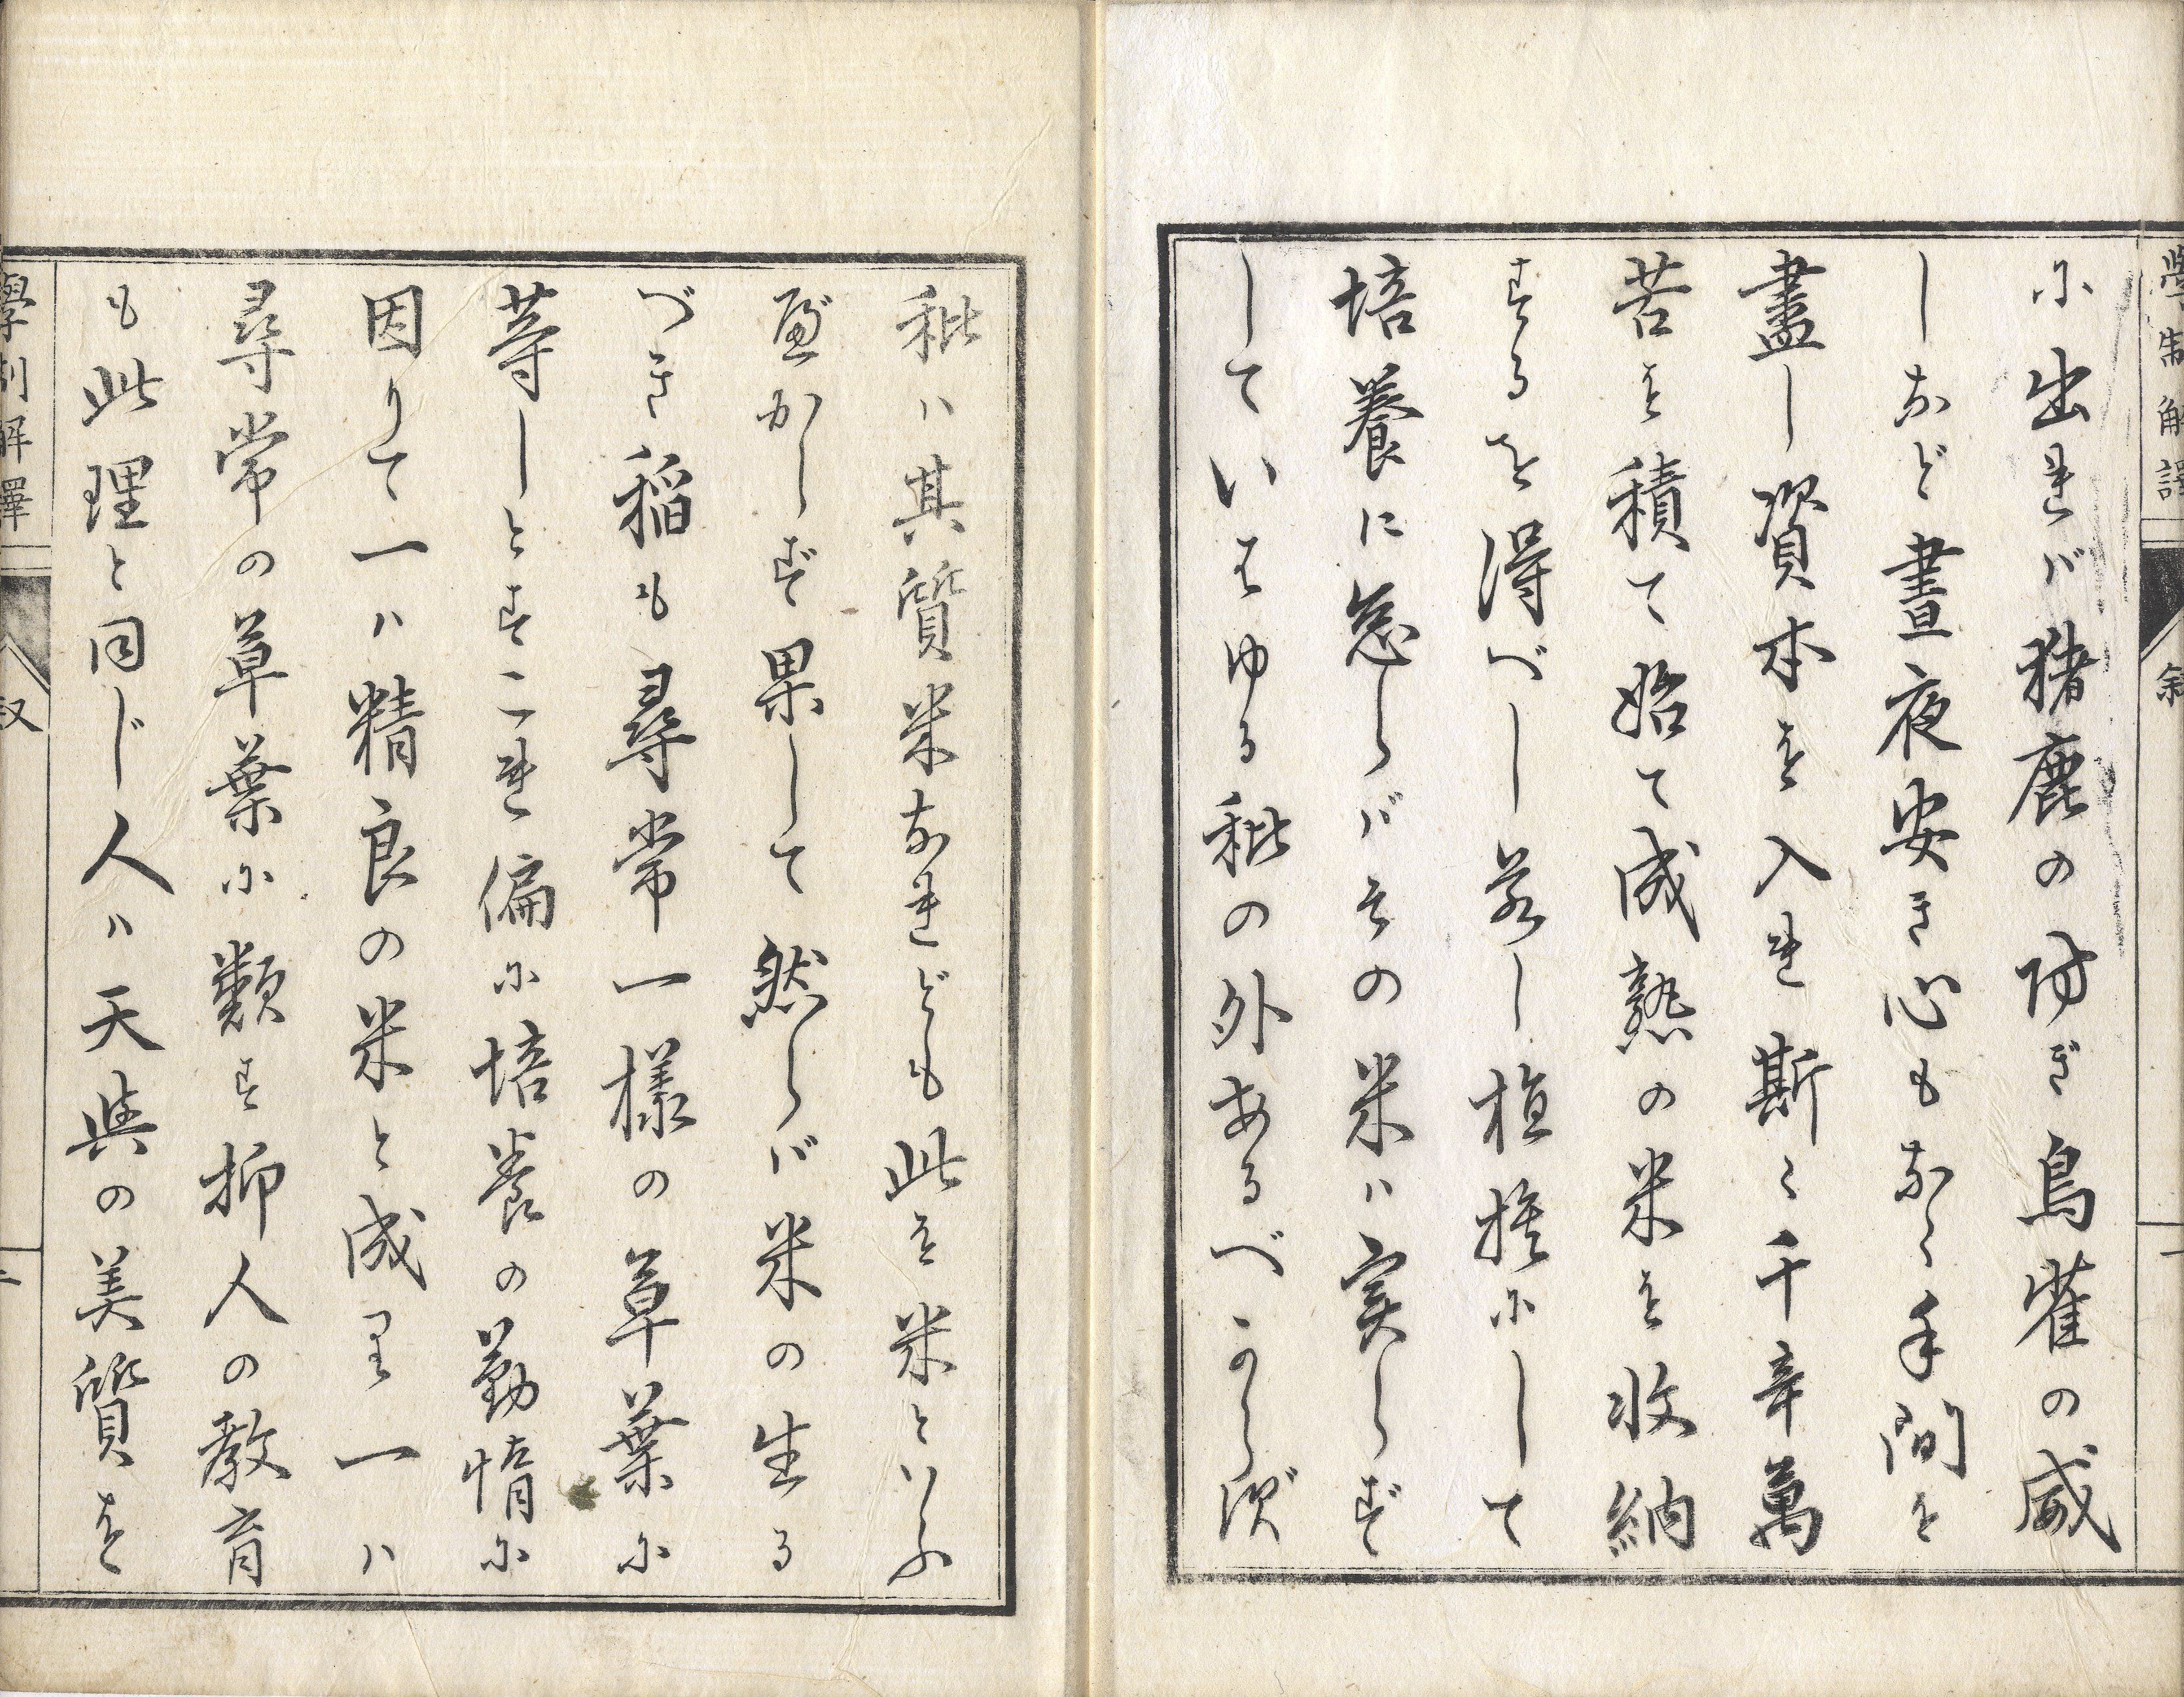 學制解譯
叙
一
に出れバ猪鹿の防ぎ鳥雀の威
しなど晝夜安き心もなく手間を
盡し資本を入れ斯く千辛萬
苦を積て始て成熟の米を收納
するを得べし若し植捨にして
培養に怠らバその米ハ実らず
していはゆる秕の外あるべからず
秕ハ其質米なれども此を米といふ
べからず果して然らバ米の生る
べき稲も尋常一樣の草葉に
等しとすこれ偏に培養の勤惰に
因りて一ハ精良の米と成り一ハ
尋常の草葉に類す抑人の教育
も此理と同じ人ハ天與の美質を
學制解譯
叙